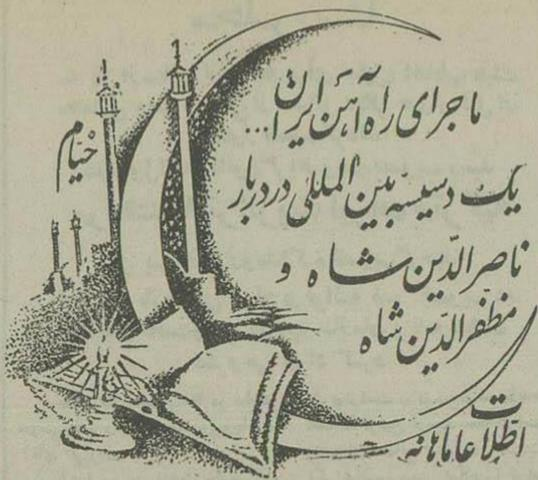 ماجرای راه آهن ایران...
یک دسیسه بین المللی در دربار
ناصرالدّین شاه و
مظفرالدّین شاه
خیّام
اطلاعات ماهانه